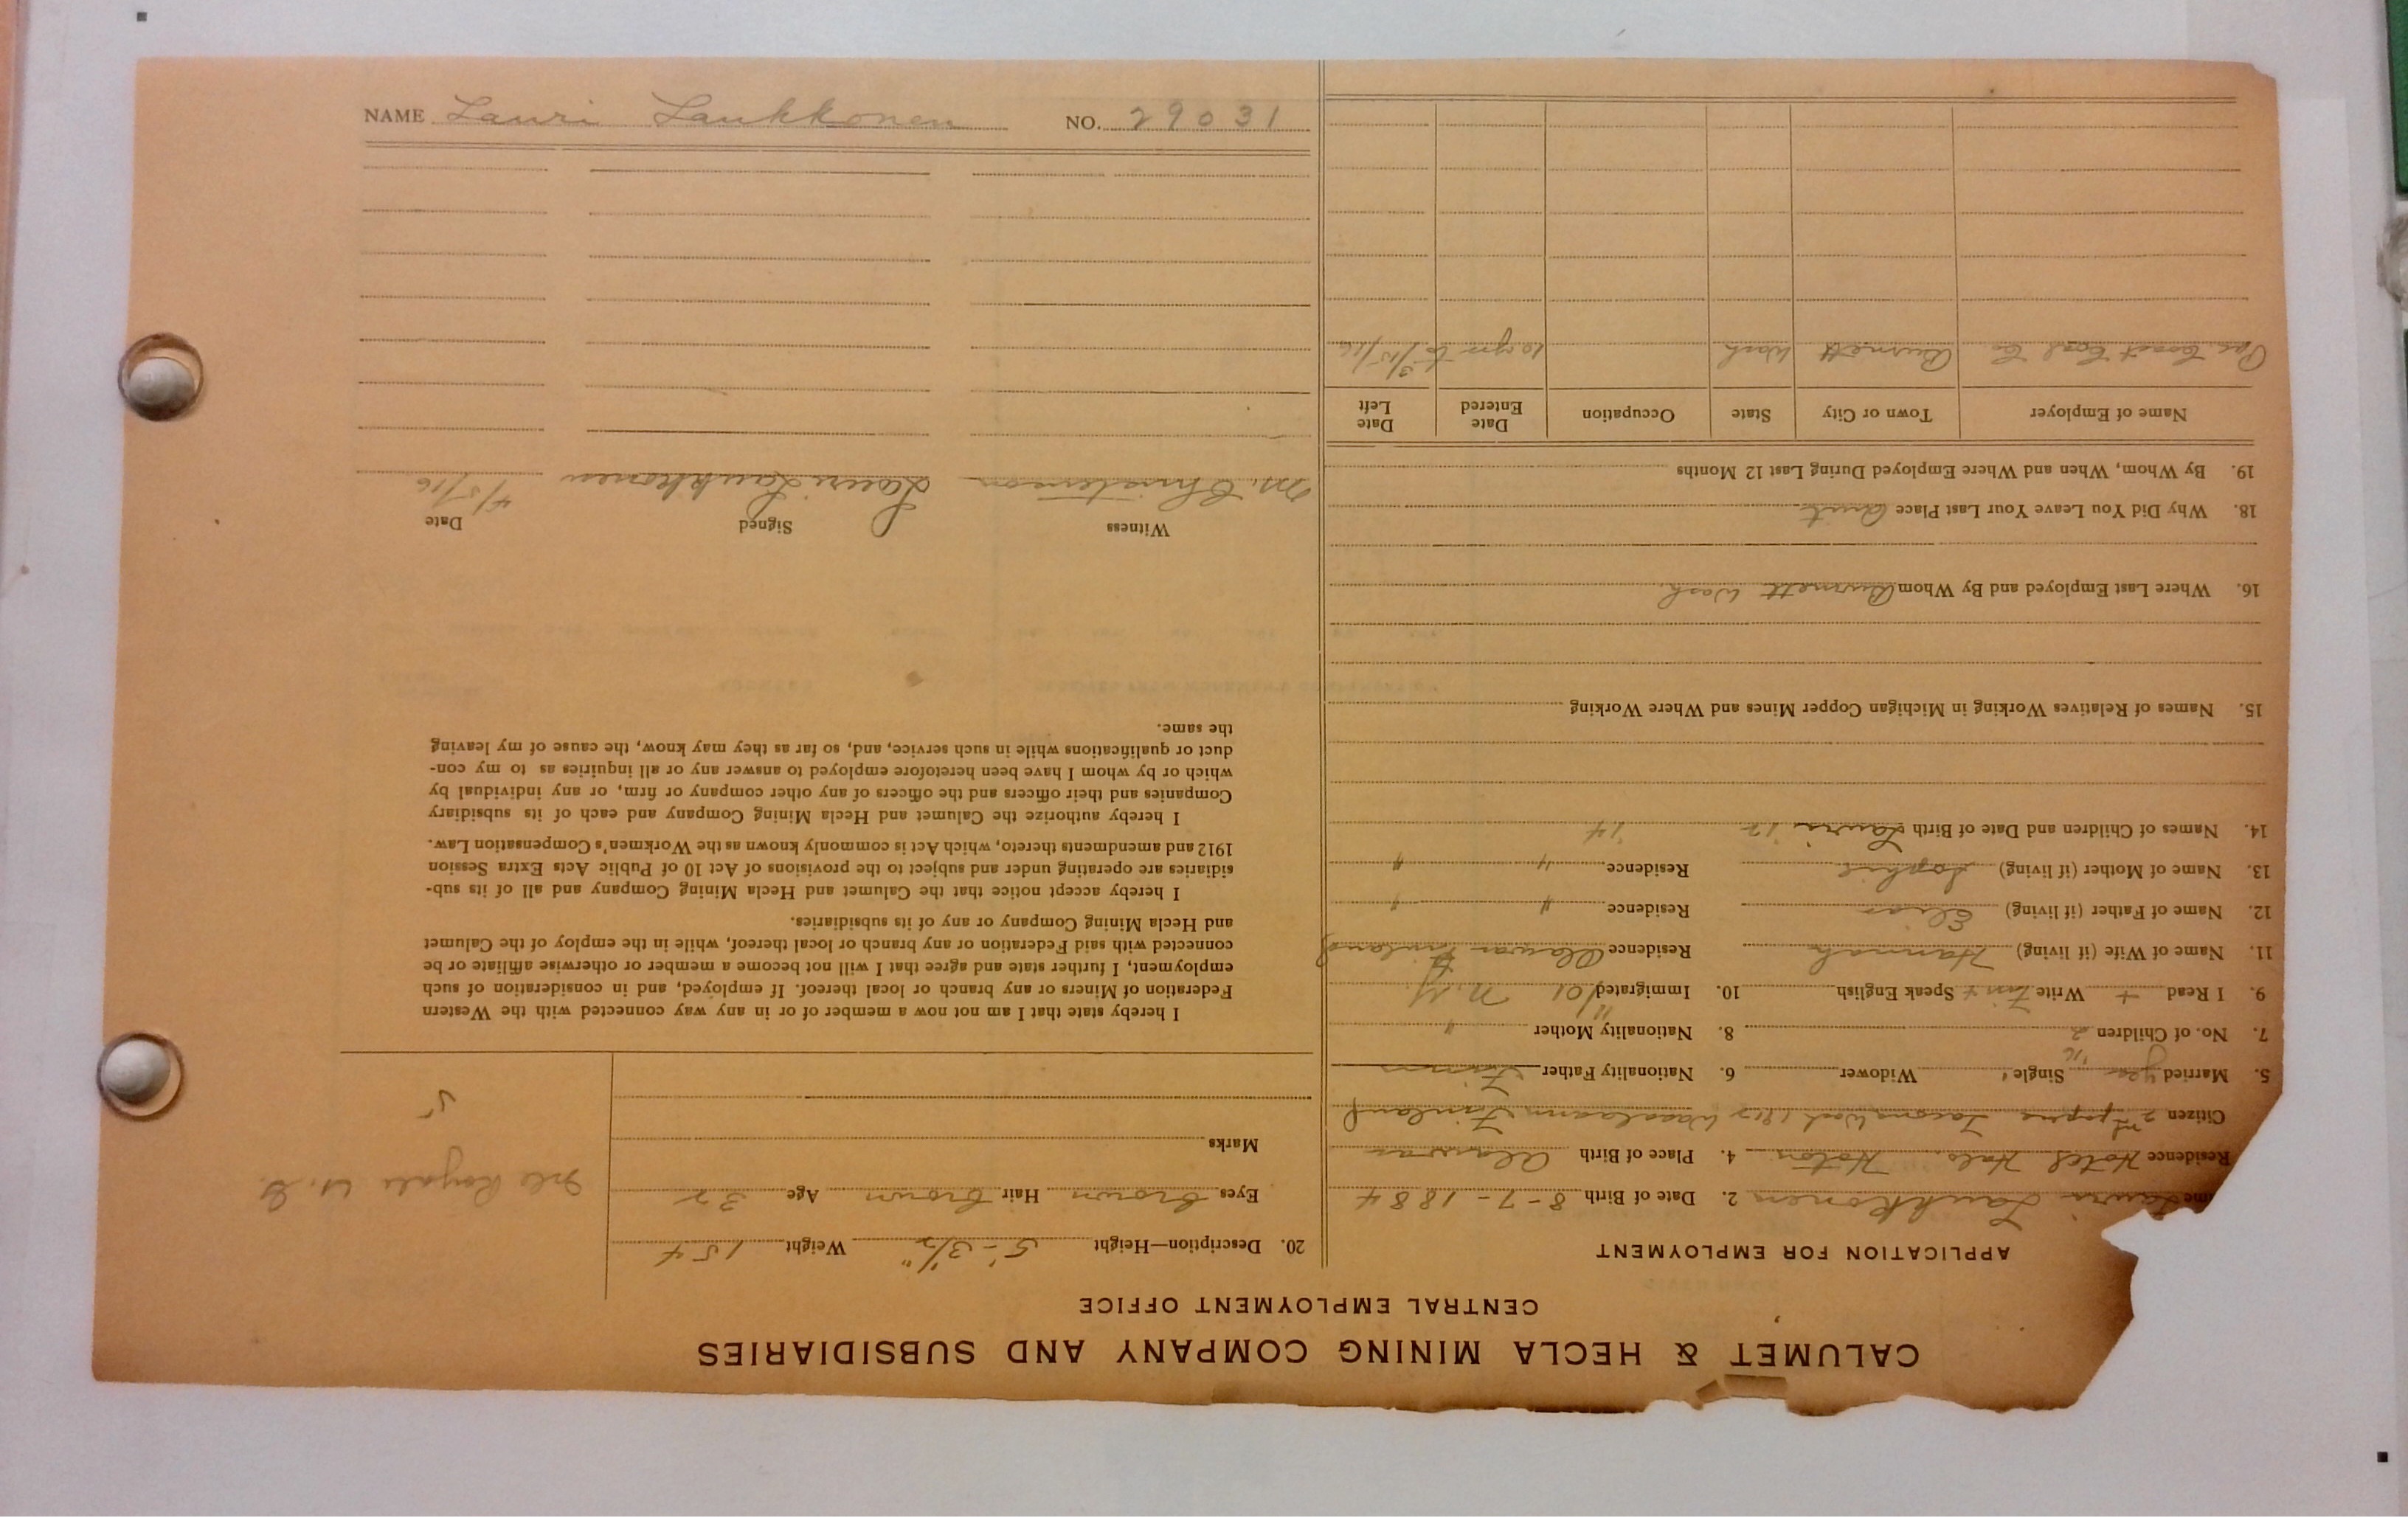 NAME Lauri Laukkonen NO. 29031
CALUMET & HECLA MINING COMPANY AND SUBSIDIARIES
CENTRAL EMPLOYMENT OFFICE
APPLICATION FOR EMPLOYMENT
me Lauri Laukkonen 2. Date of Birth 8-7-1884
Residence Hotel Hoton 4. Place of Birth Alavus
Citizen 2nd papers Tacoma Wash Finland
5. Married yes Single Widower 6. Nationality Father Finn
7. No. of Children 2 8. Nationality Mother "
9. I Read + Write Finn + Speak English 10. Immigrated 01 N.Y.
11. Name of Wife (if living) Hannah Residence Alavus Finland
12. Name of Father (if living) Elias Residence " "
13. Name of Mother (if living) Sophie Residence " "
14. Names of Children and Date of Birth Lauri 12 14
15. Names of Relatives Working in Michigan Copper Mines and Where Working
16. Where Last Employed and By Whom Burnett Wash.
18. Why Did You Leave Your Last Place Quit
19. By Whom, When and Where Employed During Last 12 Months
Name of Employer Town or City State Occupation Date Entered Date Left
Pac. Coast Coal Co. Burnett Wash 10 yrs to 3/15/16
20. Description—Height 5'-3 1/2" Weight 154
Eyes brown Hair brown Age 32
Marks
Isle Royale U. G.
5
I hereby state that I am not now a member of or in any way connected with the Western
Federation of Miners or any branch or local thereof. If employed, and in consideration of such
employment, I further state and agree that I will not become a member or otherwise affiliate or be
connected with said Federation or any branch or local thereof, while in the employ of the Calumet
and Hecla Mining Company or any of its subsidiaries.
I hereby accept notice that the Calumet and Hecla Mining Company and all of its sub-
sidiaries are operating under and subject to the provisions of Act 10 of Public Acts Extra Session
1912 and amendments thereto, which Act is commonly known as the Workmen's Compensation Law.
I hereby authorize the Calumet and Hecla Mining Company and each of its subsidiary
Companies and their officers and the officers of any other company or firm, or any individual by
which or by whom I have been heretofore employed to answer any or all inquiries as to my con-
duct or qualifications while in such service, and, so far as they may know, the cause of my leaving
the same.
Witness Signed Date
M. Christenson Lauri Laukkonen 4/5/16